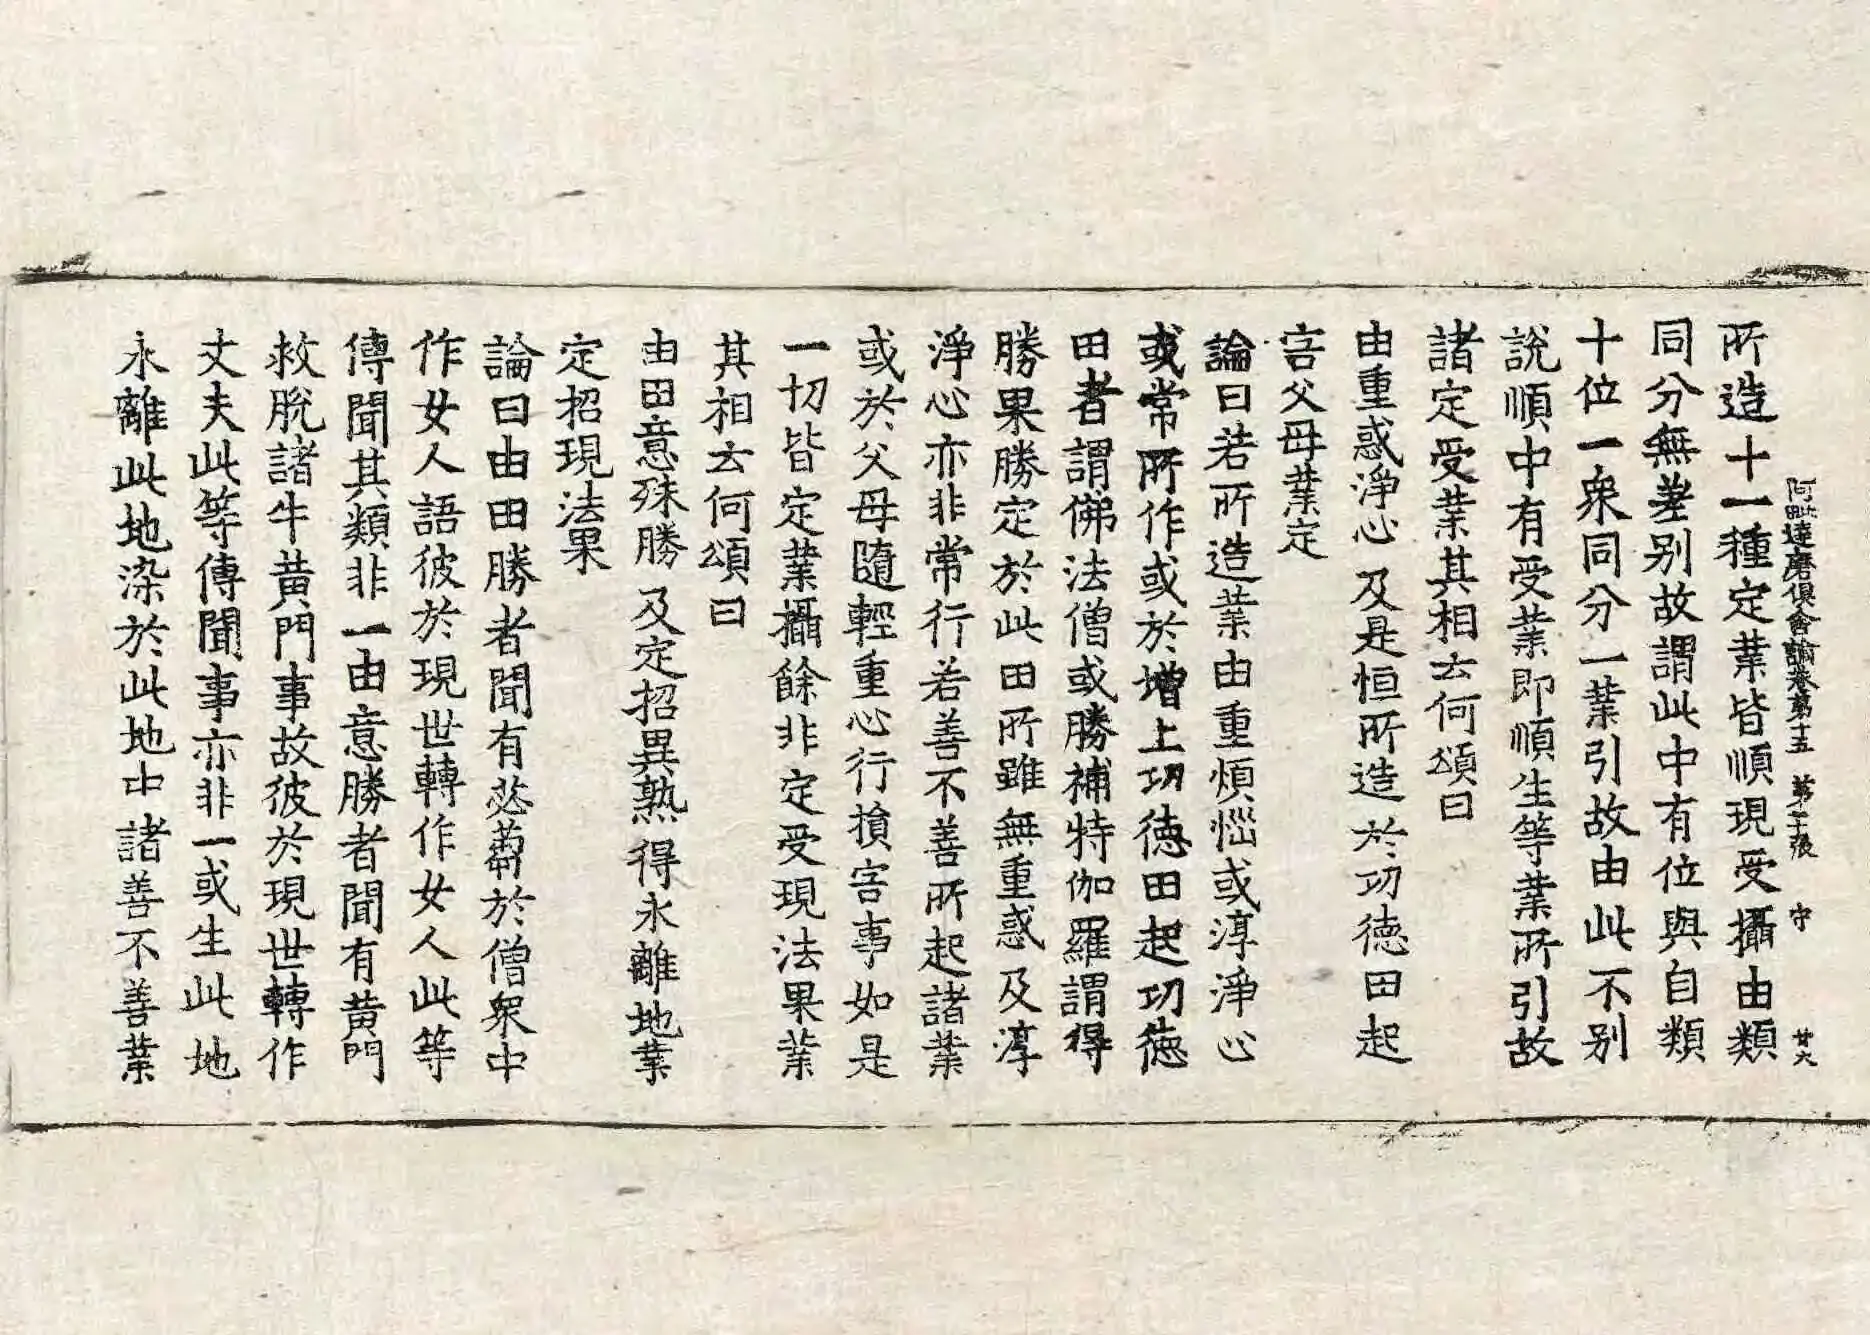 阿毗達磨俱舍論卷第十五 第二十張 守 廿六
所造十一種定業皆順現受攝由類
同分無差别故謂此中有位與自類
十位一衆同分一業引故由此不别
說順中有受業即順生等業所引故
諸定受業其相云何頌曰
由重惑淨心 及是恒所造 於功德田起
害父母業定
論曰若所造業由重煩惱或淳淨心
或常所作或於增上功德田起功德
田者謂佛法僧或勝補特伽羅謂得
勝果勝定於此田所雖無重惑及淳
淨心亦非常行若善不善所起諸業
或於父母隨輕重心行損害事如是
一切皆定業攝餘非定受現法果業
其相云何頌曰
由田意殊勝 及定招異熟 得永離地業
定招現法果
論曰由田勝者聞有苾蒭於僧衆中
作女人語彼於現世轉作女人此等
傳聞其類非一由意勝者聞有黄門
救脫諸牛黄門事故彼於現世轉作
丈夫此等傳聞事亦非一或生此地
永離此地染於此地中諸善不善業